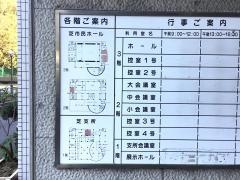 各階ご案内
芝市民ホール
芝支所
行事ご案内
利用室名 午前9:00~12:00 午後13:00~16:30
3階
ホール
控室1号
控室2号
2階
大会議室
中会議室
小会議室
控室3号
控室4号
1階
支所会議室
展示ホール